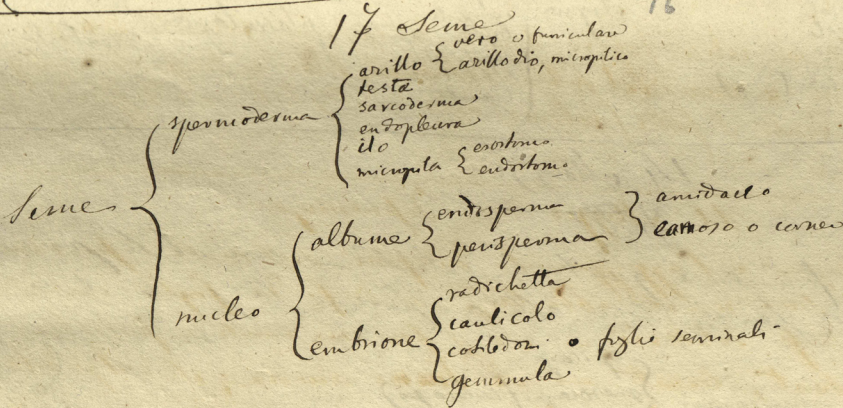 16
17 Seme
arillo { vero o funiculare
arillodio, micropilico
testa
spermoderma { sarcoderma
endopleura
ilo
micropila { esostomo
endostomo
Seme {
albume { endosperma
perisperma } amidaceo
carnoso o corneo
nucleo {
embrione { radichetta
caulicolo
cotiledoni o foglie seminali
gemmula